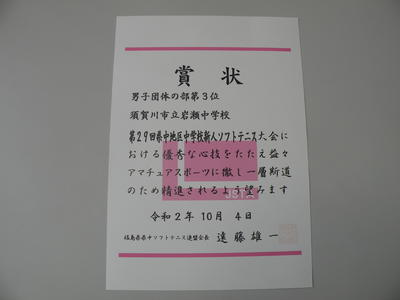 賞状
男子団体の部第3位
須賀川市立岩瀬中学校
第29回県中地区中学校新人ソフトテニス大会に
おける優秀な心技をたたえ益々
アマチュアスポーツに徹し一層斯道
のため精進されるよう望みます
JSTA
令和2年10月4日
福島県県中ソフトテニス連盟会長 遠藤雄一